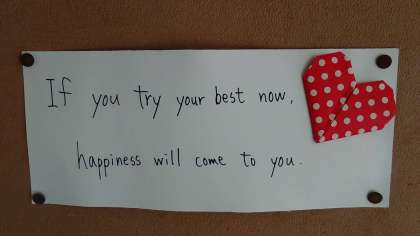 If you try your best now,
happiness will come to you.